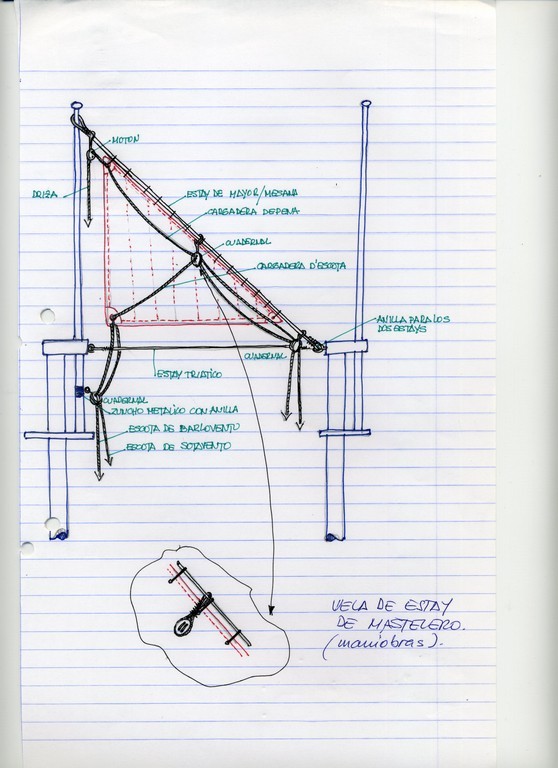 MOTON
DRIZA
ESTAY DE MAYOR/MESANA
CARGADERA DE PENA
CUADERNAL
CARGADERA D'ESCOTA
ANILLA PARA LOS
DOS ESTAYS
CUADERNAL
ESTAY TRIATICO
CUADERNAL
ZUNCHO METALICO CON ANILLA
ESCOTA DE BARLOVENTO
ESCOTA DE SOTAVENTO
VELA DE ESTAY
DE MASTELERO.
(maniobras).